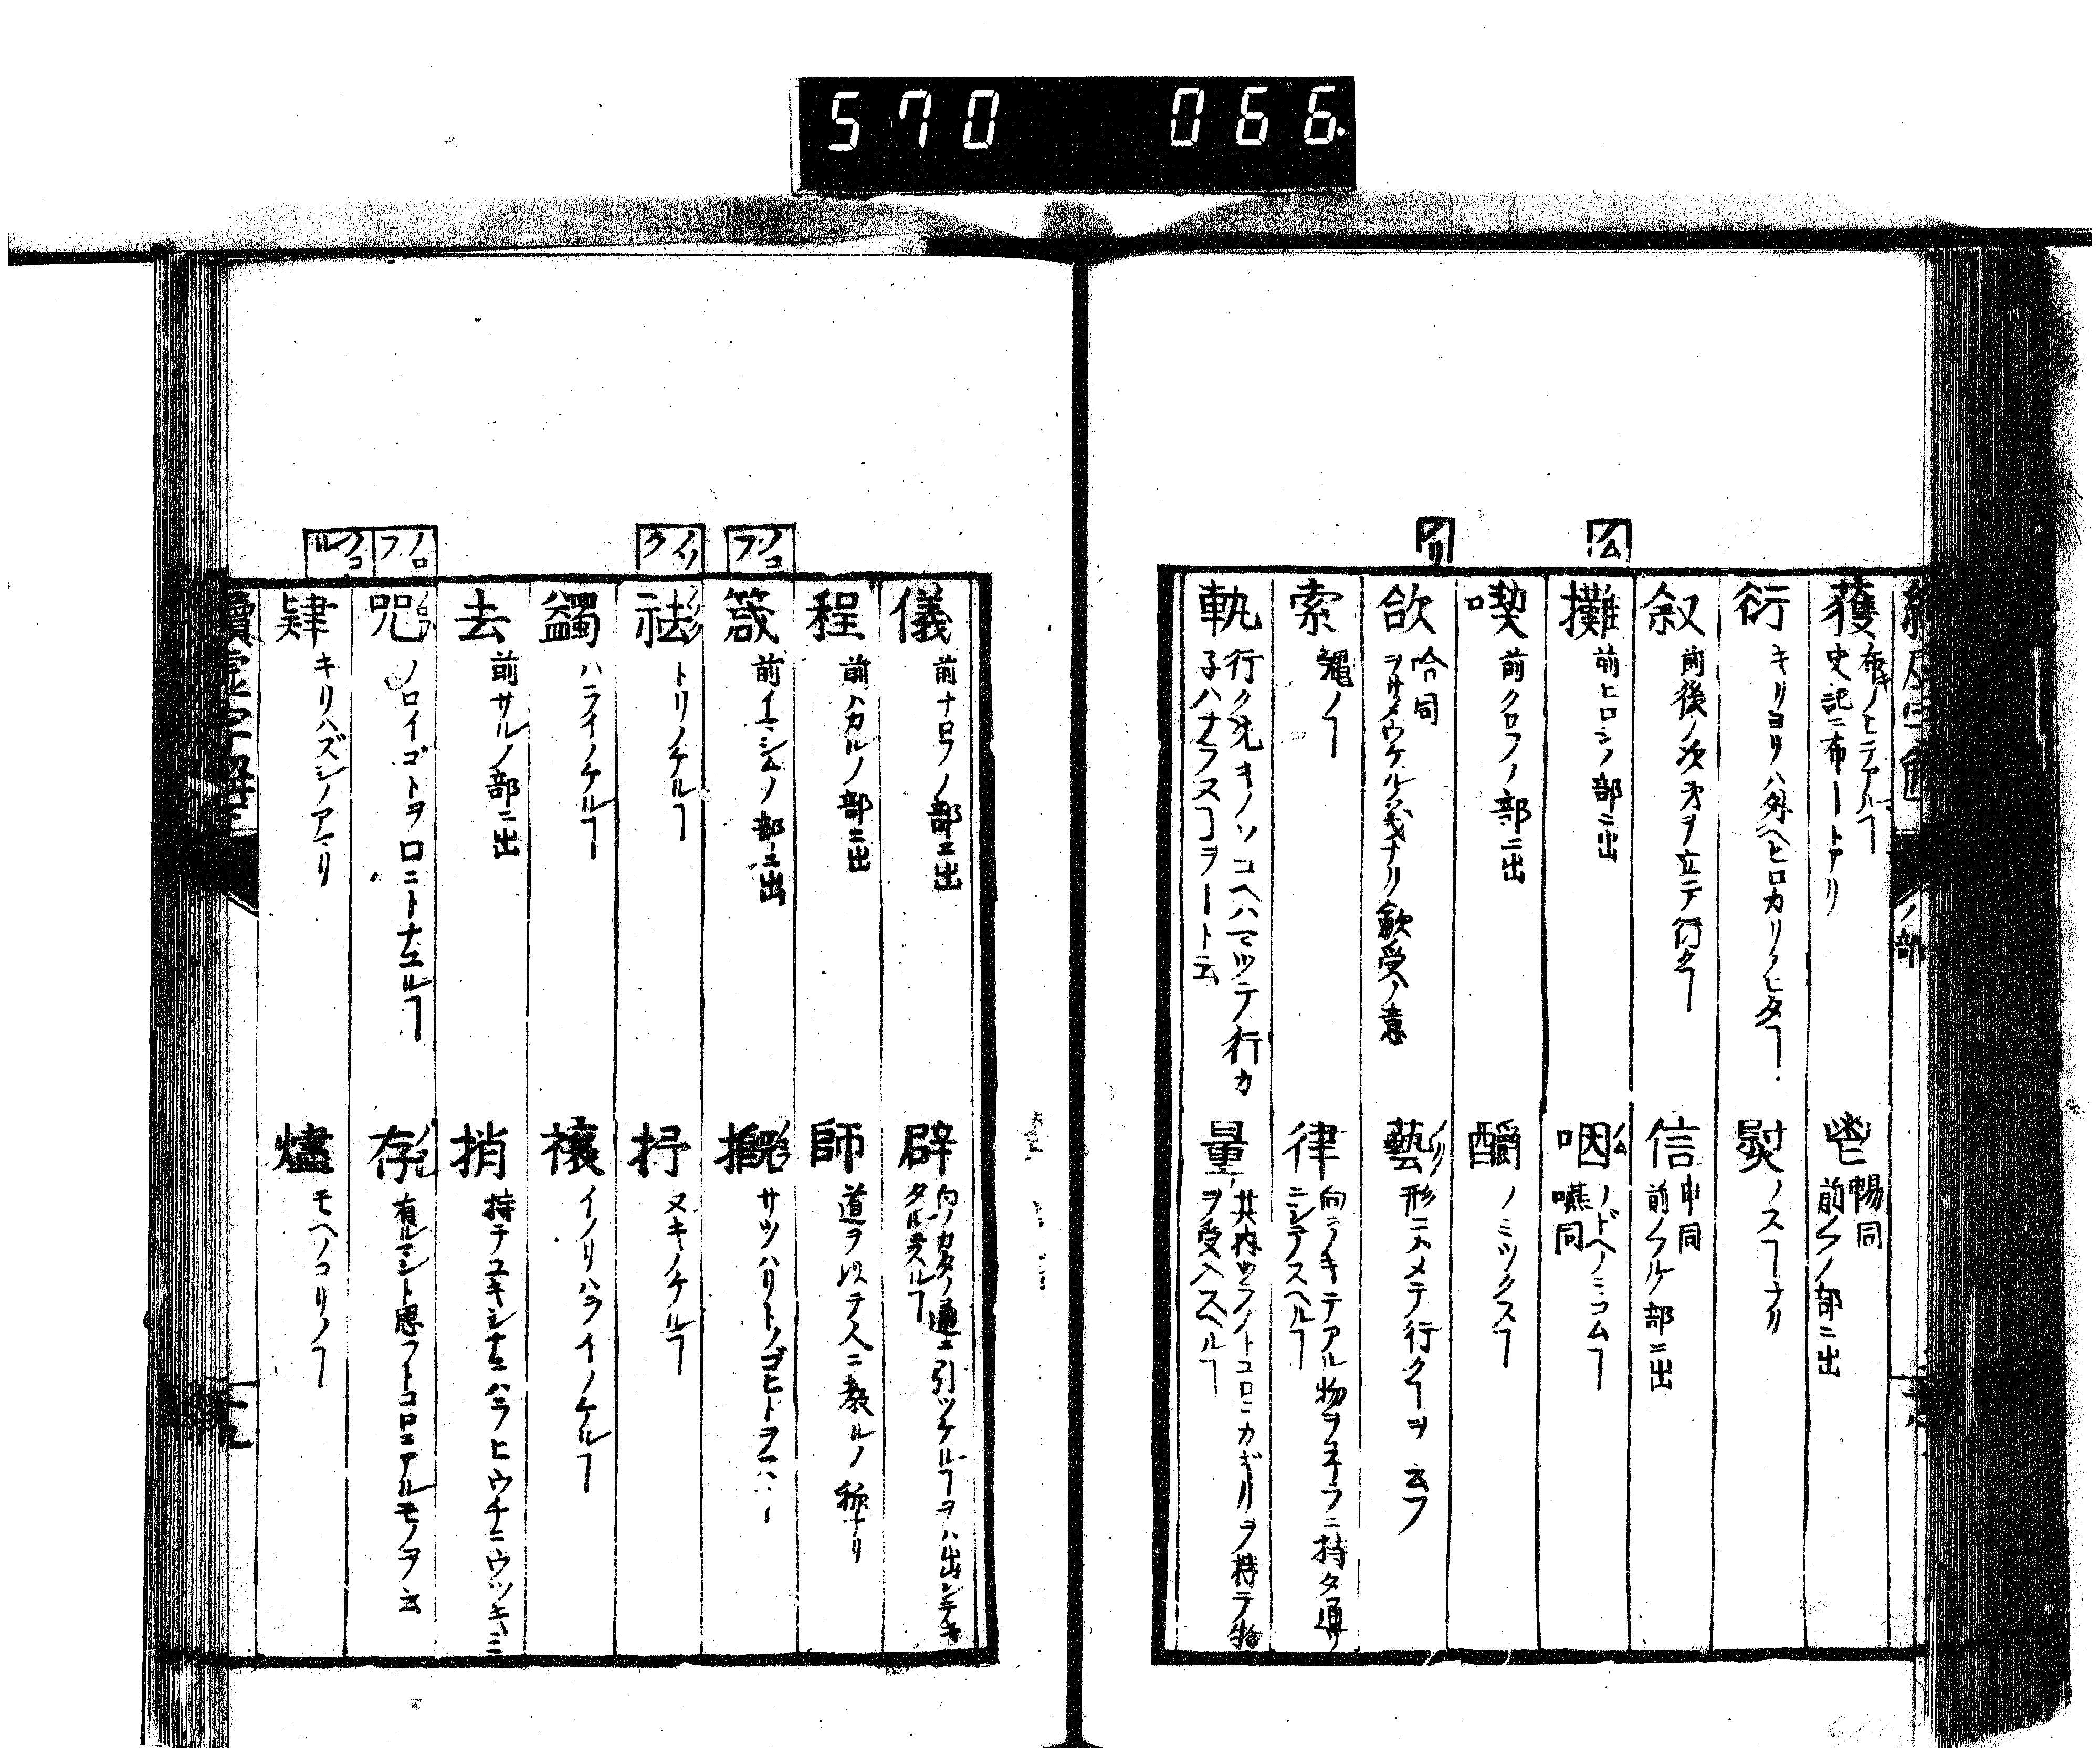 570 066
ノム
ノリ
ノ部
蒦 布ノヒテアルヿ
史記ニ布ートアリ
鬯 暢同
前ノフノ部ニ出
衍 キリヨリハ外ヘヒロカリノヒタヿ
熨 ノスヿナリ
叙 前後ノ次才ヲ立テ行クヿ
信 申同
前ノフル部ニ出
攤 前ヒロシノ部ニ出
咽 ノム ノドヘノミコムヿ
嚥同
喫 前クロフノ部ニ出
釂 ノミツクスヿ
欱 哈同
ヲサメウケル義ナリ歛受ノ意
藝 ノリ 形ニハメテ行クヿヲ云フ
索 縄ノヿ
律 向ニノキテアル物ヲ手ラニ持タ通リ
ニシテスヘルヿ
軌 行ク先キノソコヘハマツテ行カ
子ハナラスヿヲート云
量 其内ツラノトコロニカギリヲ持テ物
ヲ受入スヘルヿ
ノゴフ
ノゾク
ノロフ
ノコル
儀 前ナロフノ部ニ出
辟 向ノカタノ通ニ引ツケルヿヲハ出シテキ
程 前ハカルノ部ニ出
師 道ヲ以テ人ニ教ルノ称ナリ
箴 前イマシムノ部ニ出
サツハリトノゴヒトヲ
祛 トリノケルヿ
抒 ヌキノケルヿ
蠲 ハライノケルヿ
禳 イノリハライノケルヿ
去 前サルノ部ニ出
捎 持テユキシナニハラヒウチニウツキミ
咒 ノロイゴトヲ口ニトナエルヿ
存 有ルシト思フトコロニアルモノヲ云
肄 キリハズシノアマリ
燼 モヘノコリノヿ